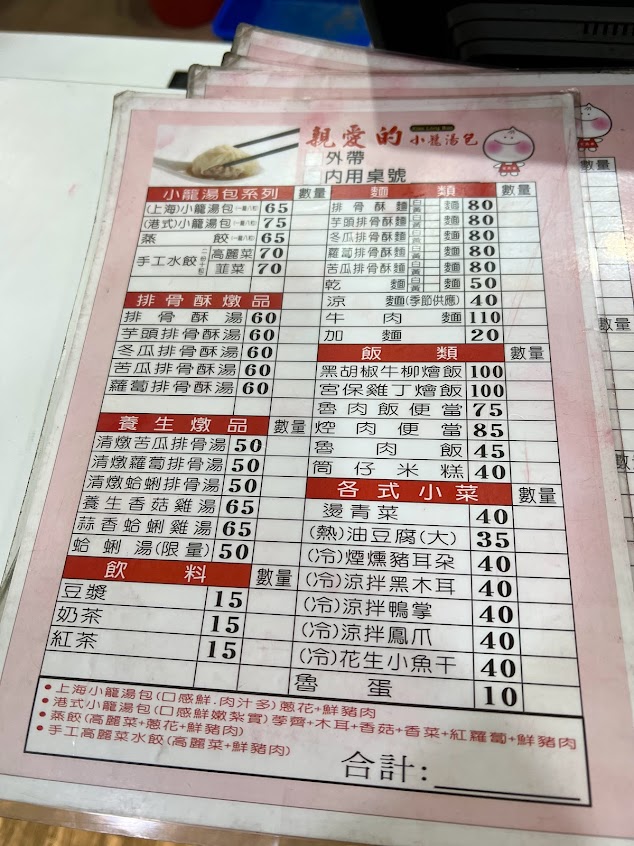 親愛的 小籠湯包
外帶
內用桌號
小籠湯包系列 數量
(上海)小籠湯包(一籠八粒) 65
(港式)小籠湯包(一籠八粒) 75
蒸餃(一籠八粒) 65
手工水餃 高麗菜 70
韮菜 70
排骨酥燉品
排骨酥湯 60
芋頭排骨酥湯 60
冬瓜排骨酥湯 60
苦瓜排骨酥湯 60
蘿蔔排骨酥湯 60
養生燉品 數量
清燉苦瓜排骨湯 50
清燉蘿蔔排骨湯 50
清燉蛤蜊排骨湯 50
養生香菇雞湯 65
蒜香蛤蜊雞湯 65
蛤蜊湯(限量) 50
飲料 數量
豆漿 15
奶茶 15
紅茶 15
麵類 數量
排骨酥麵 白黃 麵 80
芋頭排骨酥麵 白黃 麵 80
冬瓜排骨酥麵 白黃 麵 80
蘿蔔排骨酥麵 白黃 麵 80
苦瓜排骨酥麵 白黃 麵 80
乾麵 白黃 麵 50
涼麵(季節供應) 40
牛肉麵 110
加麵 20
飯類 數量
黑胡椒牛柳燴飯 100
宮保雞丁燴飯 100
魯肉飯便當 75
焢肉便當 85
魯肉飯 45
筒仔米糕 40
各式小菜 數量
燙青菜 40
(熱)油豆腐(大) 35
(冷)煙燻豬耳朵 40
(冷)涼拌黑木耳 40
(冷)涼拌鴨掌 40
(冷)涼拌鳳爪 40
(冷)花生小魚干 40
魯蛋 10
●上海小籠湯包(口感鮮.肉汁多)蔥花+鮮豬肉
●港式小籠湯包(口感鮮嫩紮實)荸薺+木耳+香菇+香菜+紅蘿蔔+鮮豬肉
●蒸餃(高麗菜+蔥花+鮮豬肉)
●手工高麗菜水餃(高麗菜+鮮豬肉)
合計: